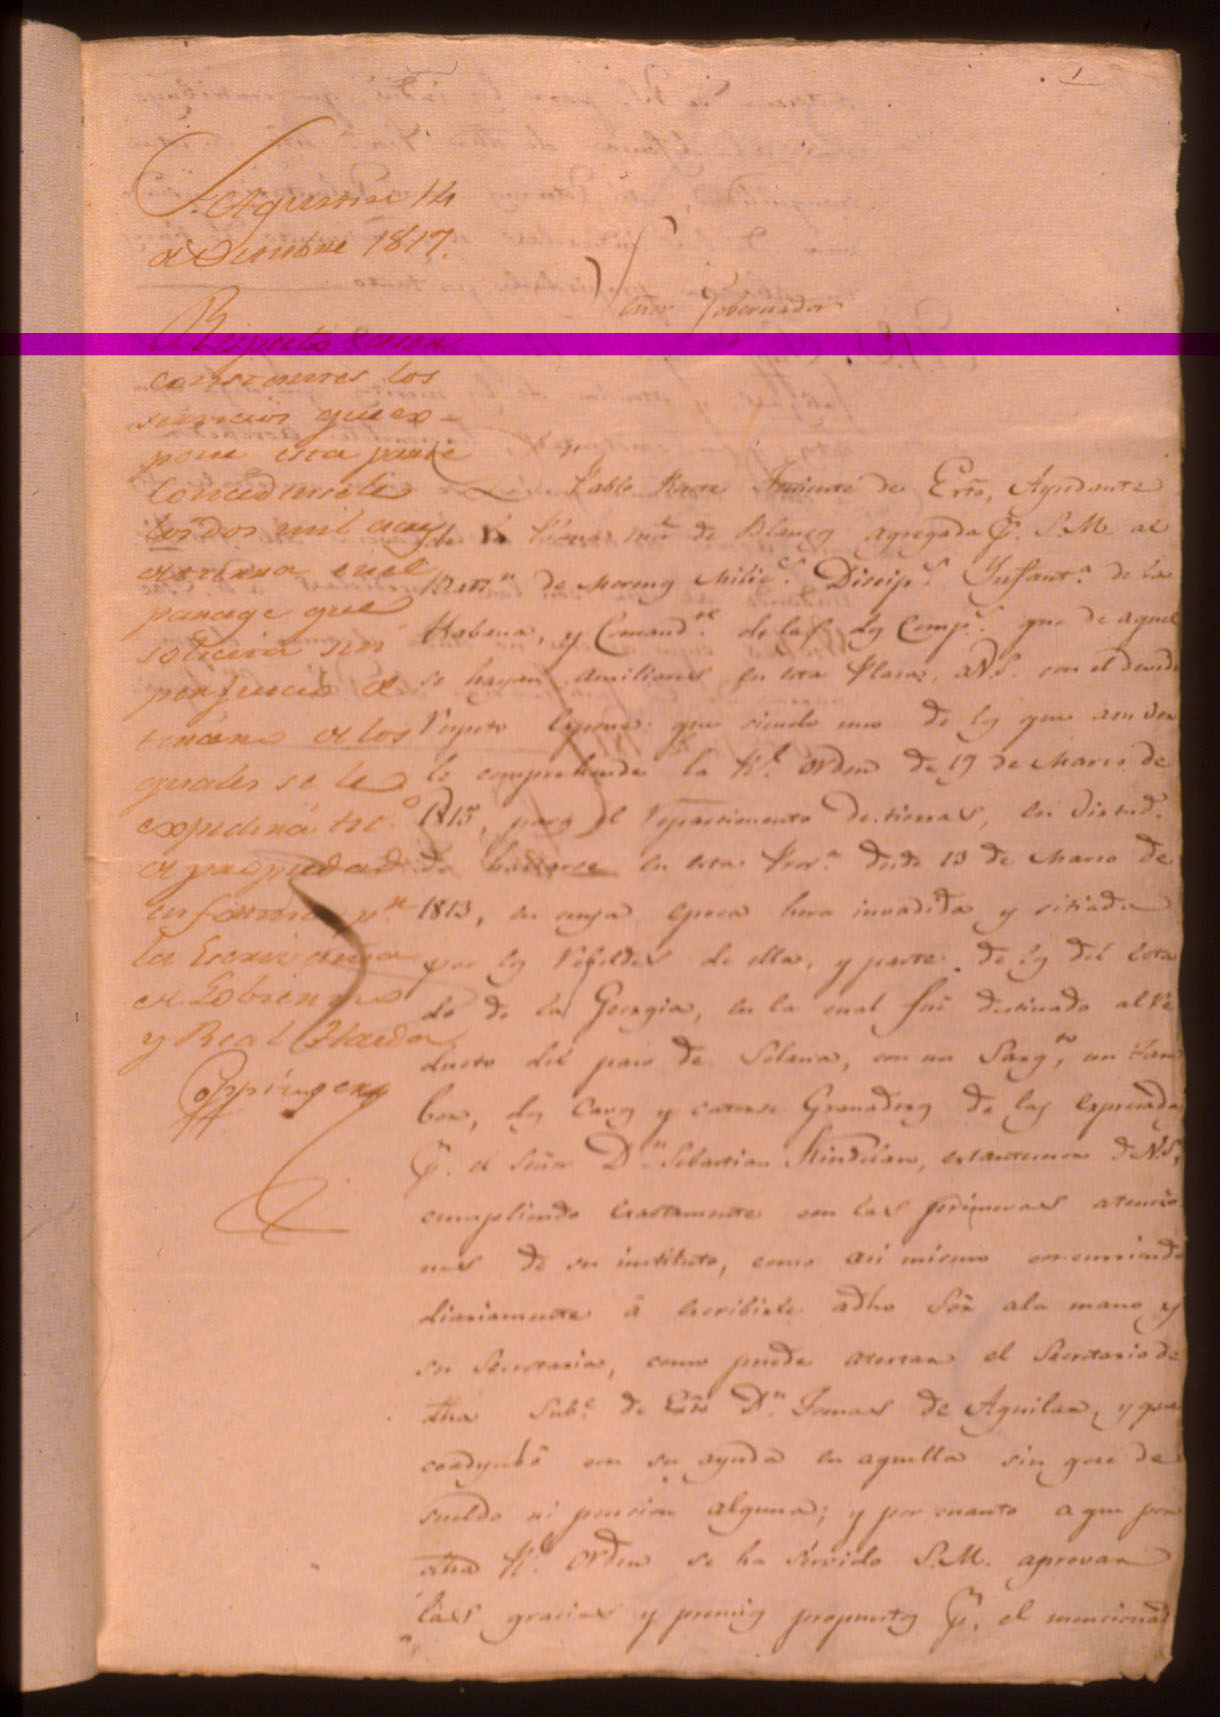 1
S. Agustin 14
de Diciembre 1817.
Respecto
constantes los
servicios que ex-
pone esta parte
concedansele
los dos mil acres
de tierra en el
parage que
solicita sin
perjuicio de
tercero de los
quales se le
expedirá tit.o
de propiedad
en forma p.r
la Escrivania
de Gobierno
y Real Hacda.
Coppinger
Señor Gobernador
Pablo Teniente de Exto, Ayudante
de la mor de Blancos agregada P. S.M. al
Batn de Morenos Milics Discips Infanta de la
Habana, y Comandte de las dos Comps que de aquel
se hayan auxiliares en esta Plaza, a V.S. con el devido
respeto expone: que siendo uno de los que
le comprehende la Rl Orden de 19 de Marzo de
1815, para el repartimento de tierras, en virtud
de hallarse en esta Prova desde 13 de Marzo de
1813, en cuya epoca hera invadida y sitiada
por los reveldes de ella, y parte de los del Esta
do de la Georgia, en la cual fué destinado al re
ducto del paso de Solana, con un Sargto, un Tam
bor, dos Cavos y catorce Granaderos de las expresadas
P. el Señor Dn Sebastian Kindelan, extantecesor de V.S,
cumpliendo exactamente con las primeras atencio
nes de su instituto, como asi mismo concurriendo
diariamente á escribirle adho Sôr ala mano y
su Secretaria, como puede atestar el Secretario de
dha Subte de Exto Dn Tomas de Aguilar, y que
coadyubó con su ayuda en aquella sin goce de
sueldo ni pension alguna; y por cuanto a que por
otra Rl Orden se ha servido S.M. aprovar
las gracias y premios propuestos P. el mencionado